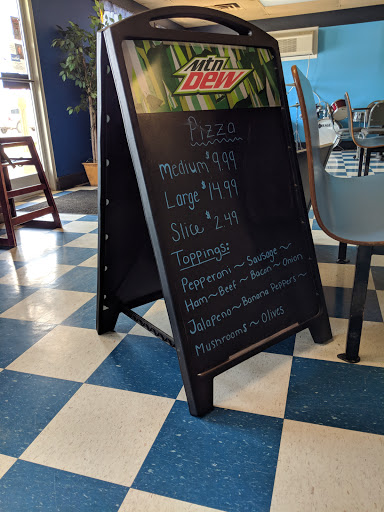 Mtn
DEW
Pizza
Medium $9.99
Large $14.99
Slice $2.49
Toppings:
Pepperoni ~ Sausage ~
Ham ~ Beef ~ Bacon ~ Onion
Jalapeno ~ Banana Peppers ~
Mushrooms ~ Olives